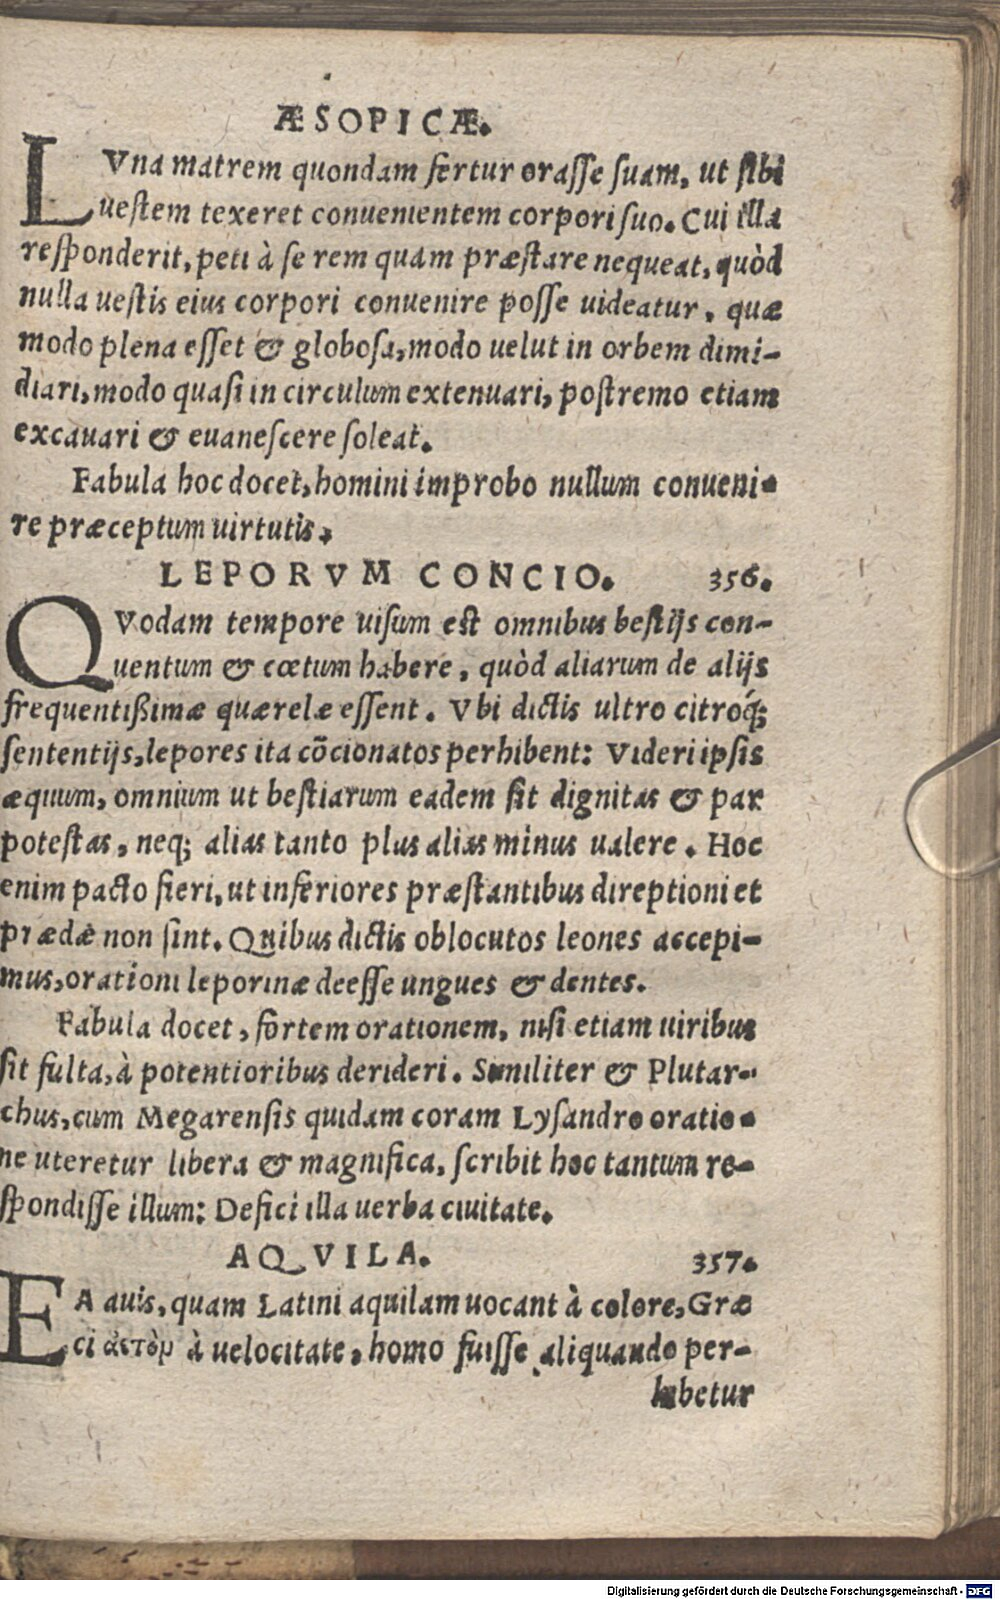 ÆSOPICÆ.
LVna matrem quondam fertur orasse suam, ut sibi
uestem texeret conuenientem corpori suo. Cui illa
responderit, peti à se rem quam præstare nequeat, quòd
nulla uestis eius corpori conuenire posse uideatur, quæ
modo plena esset & globosa, modo uelut in orbem dimi-
diari, modo quasi in circulum extenuari, postremo etiam
excauari & euanescere soleat.
Fabula hoc docet, homini improbo nullum conueni-
re præceptum uirtutis.
LEPORVM CONCIO. 356.
QVodam tempore uisum est omnibus bestijs con-
uentum & cœtum habere, quòd aliarum de alijs
frequentißimæ quærelæ essent. Vbi dictis ultro citróq;
sententijs, lepores ita cõcionatos perhibent: Videri ipsis
æquum, omnium ut bestiarum eadem sit dignitas & par
potestas, neq; alias tanto plus alias minus ualere. Hoc
enim pacto fieri, ut inferiores præstantibus direptioni et
prædæ non sint. Quibus dictis oblocutos leones accepi-
mus, orationi leporinæ deesse ungues & dentes.
Fabula docet, fortem orationem, nisi etiam uiribus
sit fulta, à potentioribus derideri. Similiter & Plutar-
chus, cum Megarensis quidam coram Lysandro oratio-
ne uteretur libera & magnifica, scribit hoc tantum re-
spondisse illum: Defici illa uerba ciuitate.
AQVILA. 357.
EA auis, quam Latini aquilam uocant à colore, Græ
ci ἀετὸν à uelocitate, homo fuisse aliquando per-
hibetur
Digitalisierung gefördert durch die Deutsche Forschungsgemeinschaft - DFG